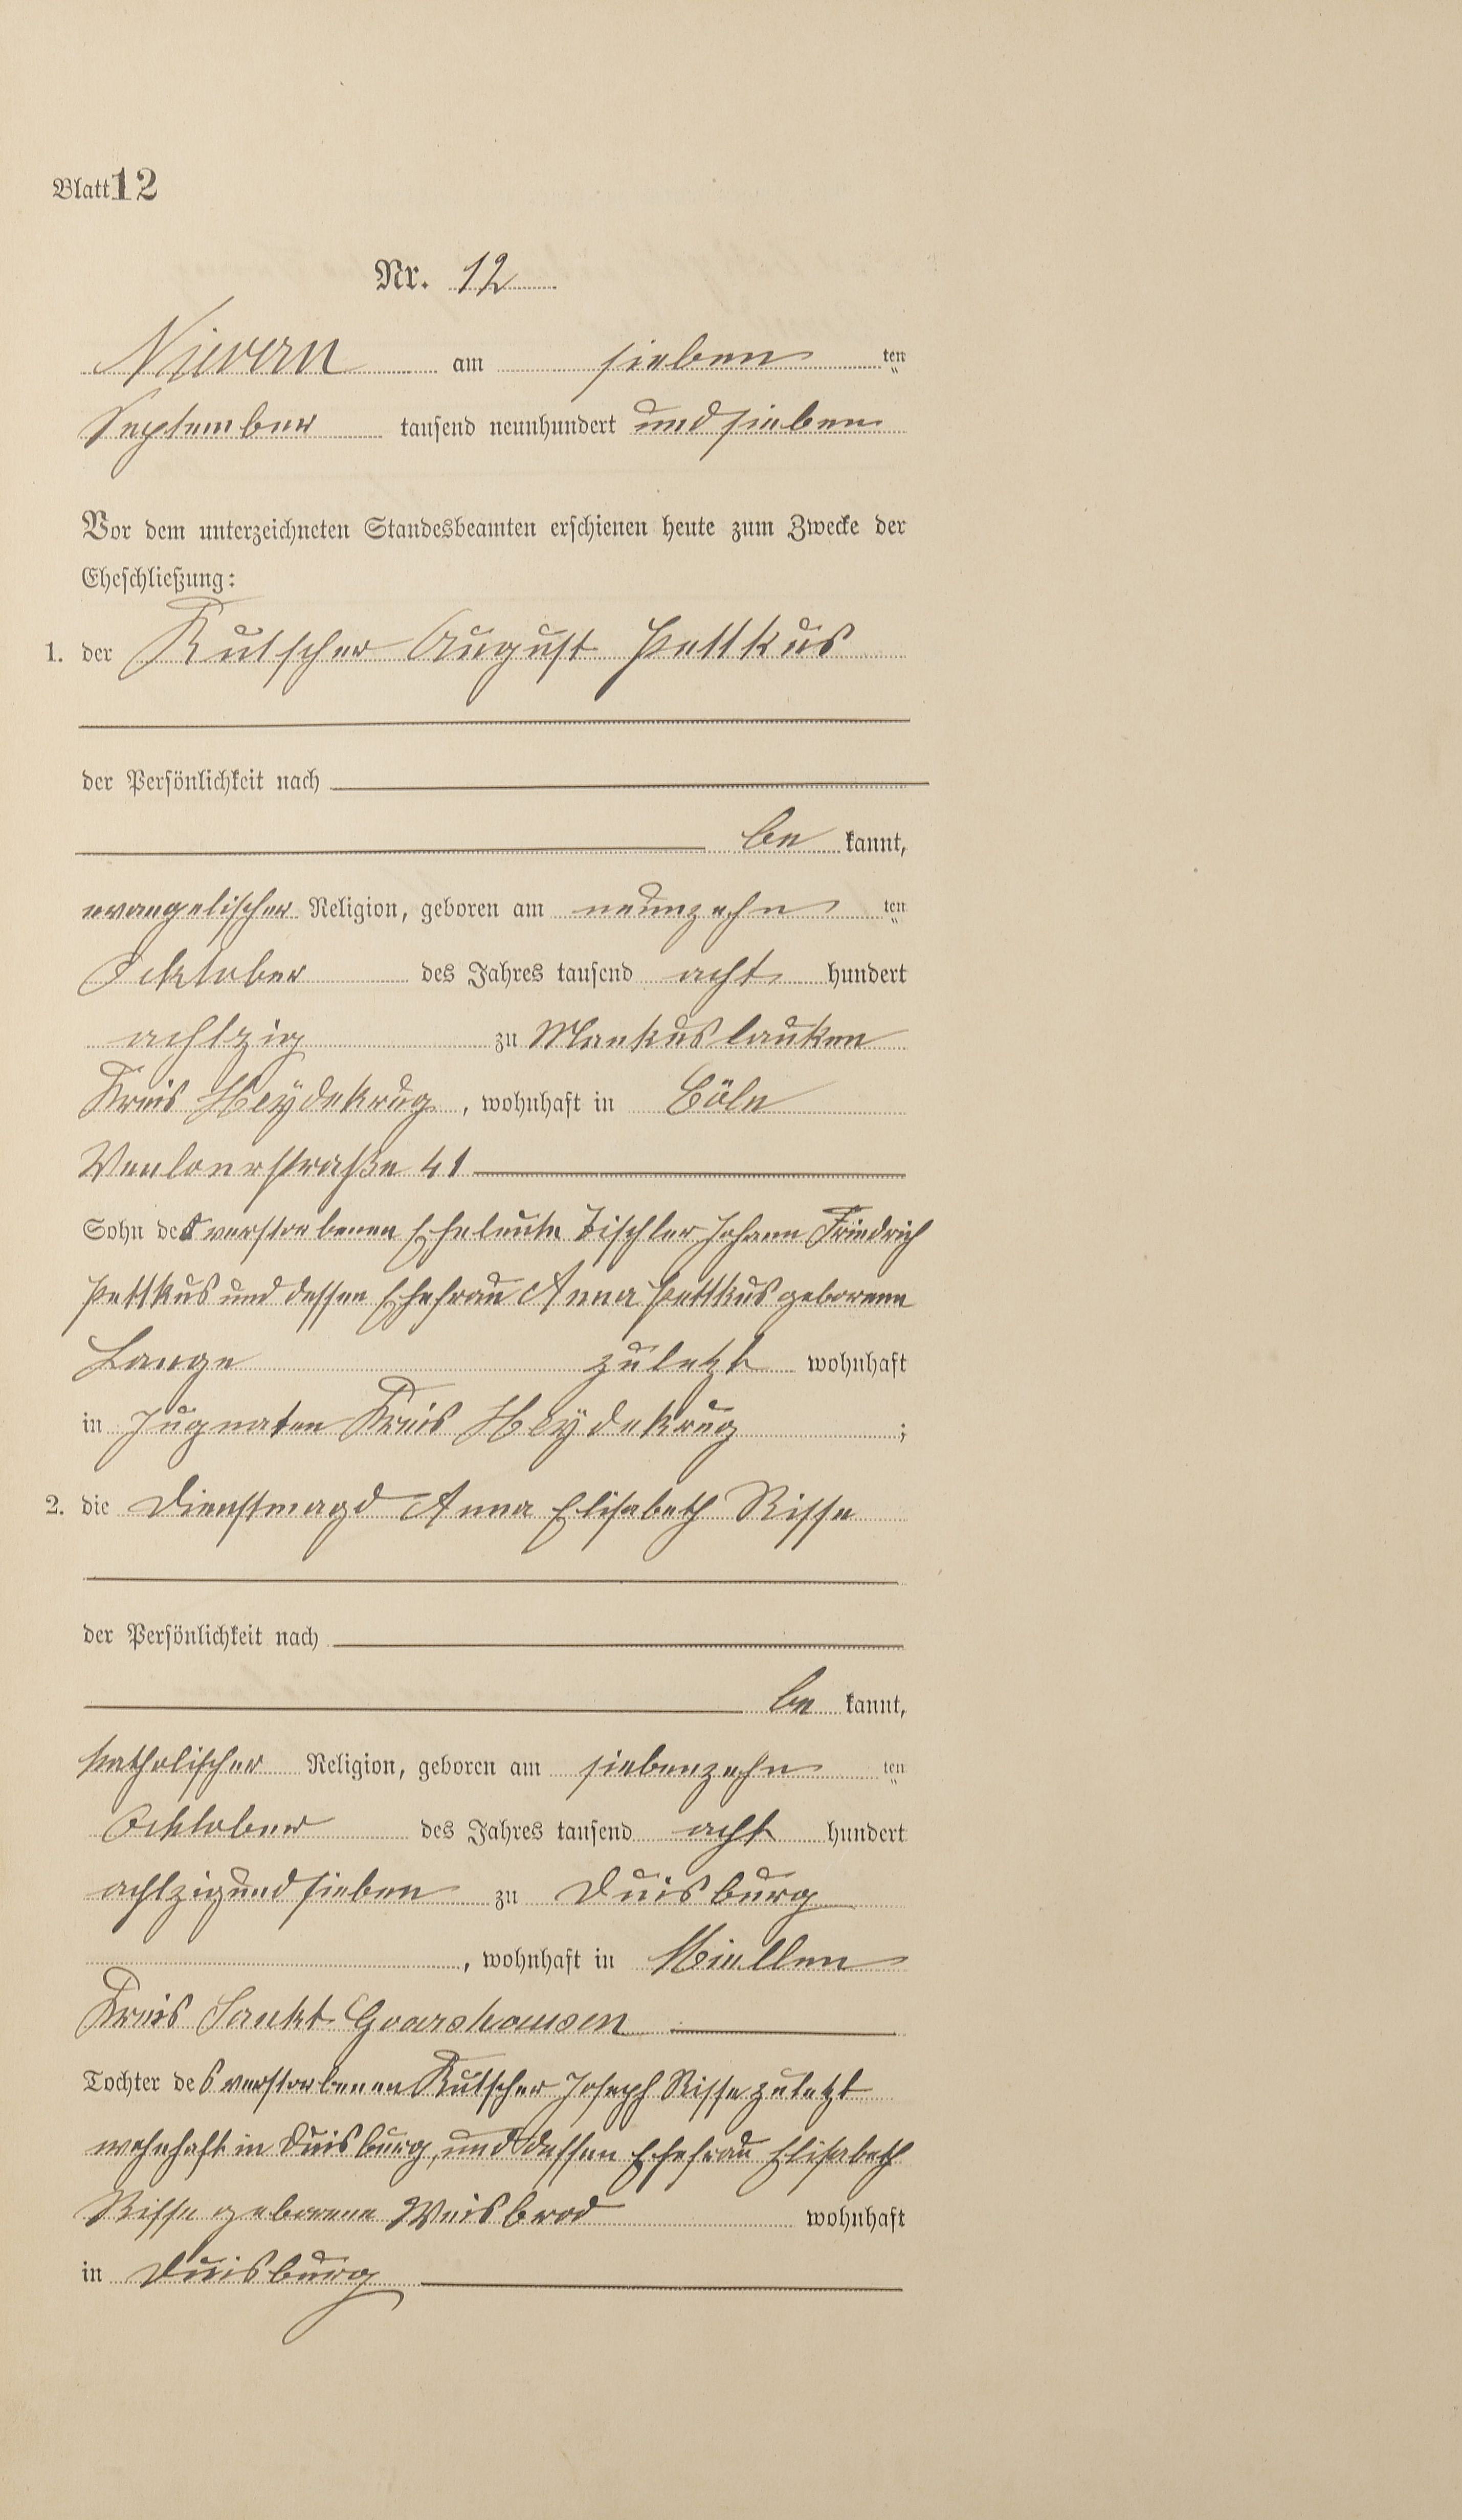 Blatt 12
Nr. 12
Nievern am sieben ten
September tausend neunhundert und sieben
Vor dem unterzeichneten Standesbeamten erschienen heute zum Zwecke der
Eheschließung:
1. der Kutscher August Pettkus
der Persönlichkeit nach
be kannt,
evangelischer Religion, geboren am neunzehn ten
Ocktober des Jahres tausend acht hundert
achtzig zu Mankuslauken
Kreis Heydekrug, wohnhaft in Cöln
Venloerstraße 41
Sohn der verstorbenen Eheleute Tischler Johann Friedrich
Pettkus und dessen Ehefrau Anna Pettkus geborene
Lange zuletzt wohnhaft
in Jugnaten Kreis Heydekrug ;
2. die Dienstmagd Anna Elisabeth Risse
der Persönlichkeit nach
be kannt,
katholischer Religion, geboren am siebenzehn ten
Ocktober des Jahres tausend acht hundert
achtzigundsieben zu Duisburg
, wohnhaft in Miellen
Kreis Sankt Goarshausen
Tochter des verstorbenen Kutscher Joseph Risse zuletzt
wohnhaft in Duisburg, und dessen Ehefrau Elisabeth
Risse geborene Weisbrod wohnhaft
in Duisburg